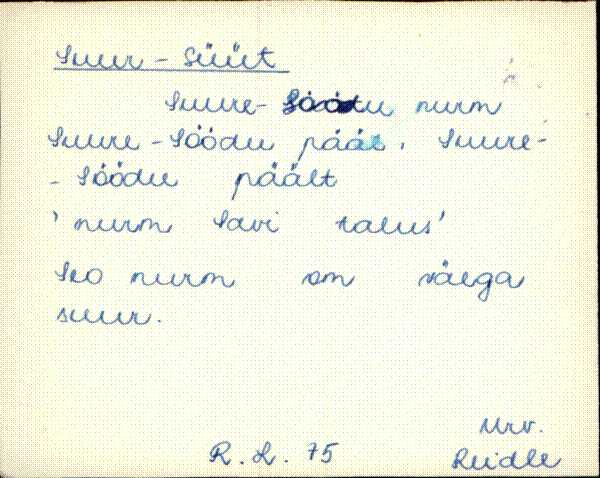 Suur-Süüt
Suure-Söödu nurm
Suure-Söödu pääl, Suure-
-Söödu päält
'nurm Savi talus'
Seo nurm om väega
suur.
Urv.
R. L. 75 Reidle